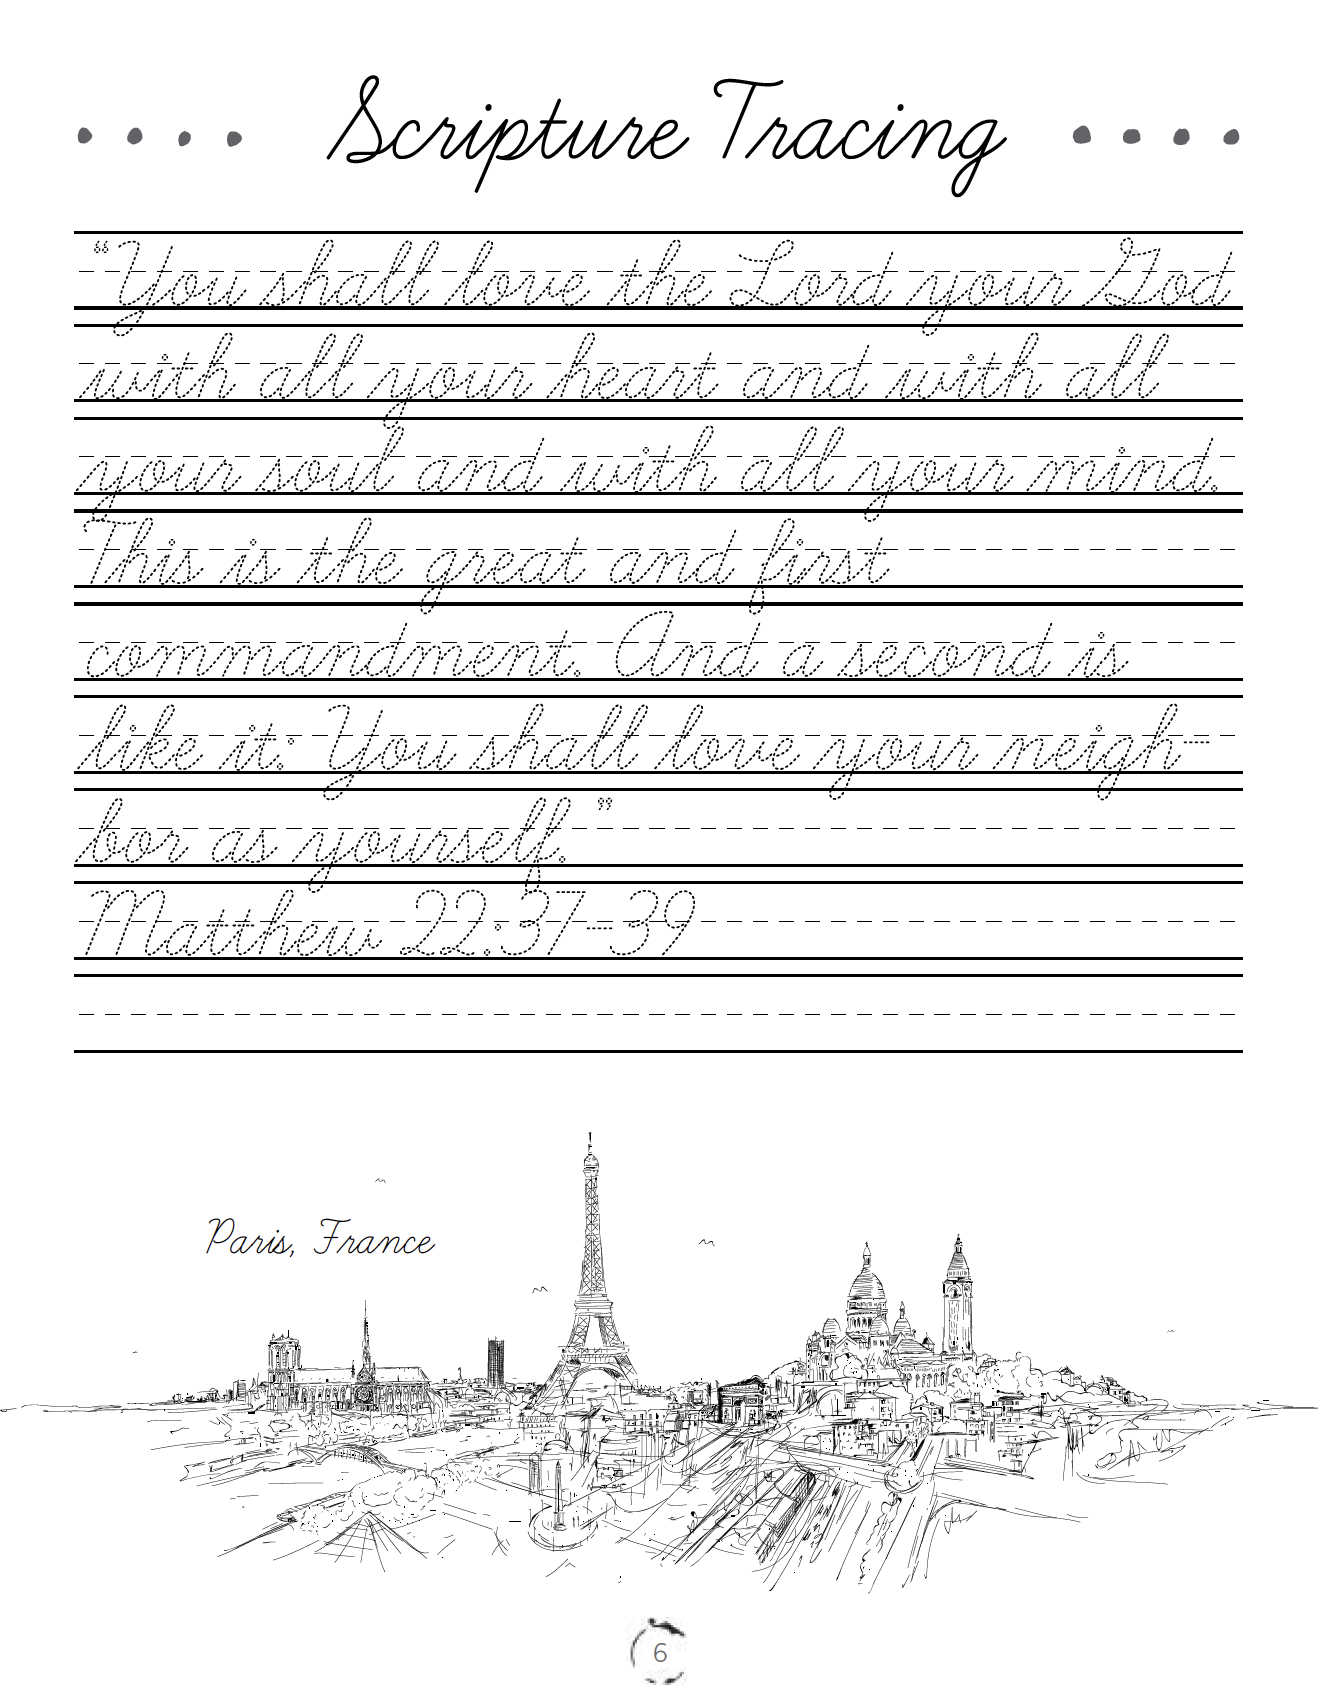 Scripture Tracing
“You shall love the Lord your God
with all your heart and with all
your soul and with all your mind.
This is the great and first
commandment. And a second is
like it: You shall love your neigh-
bor as yourself.”
Matthew 22:37-39
Paris, France
6